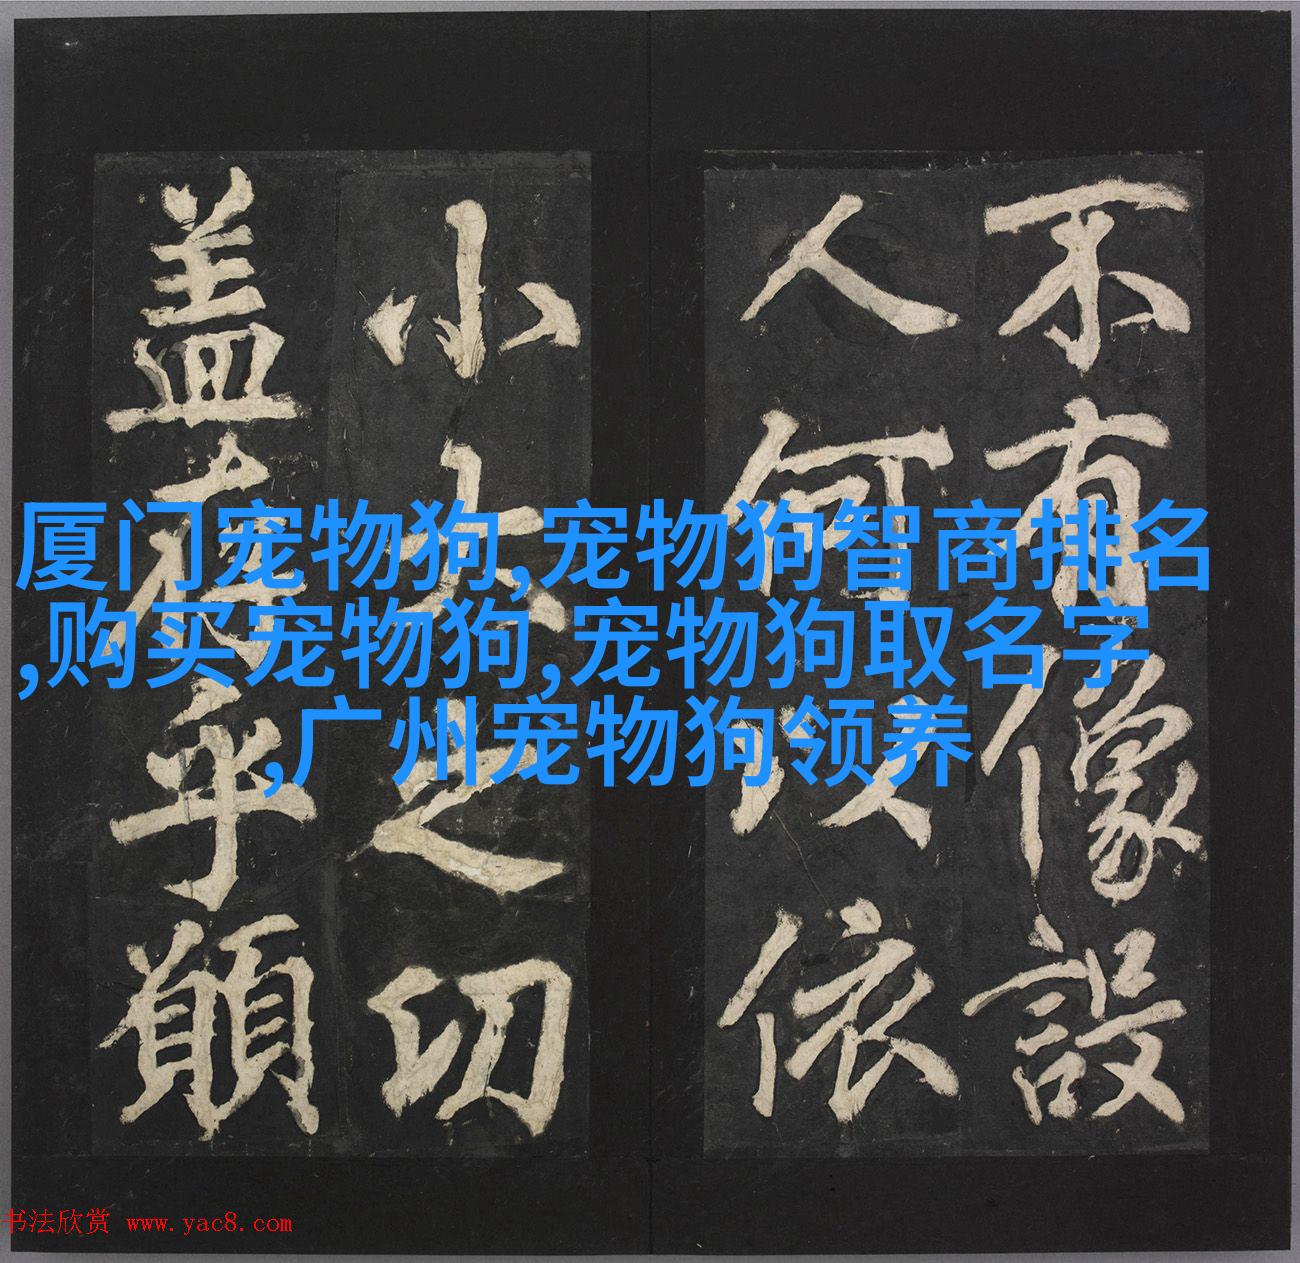 不有像設
人何以依
小大之切
盖有乎顚
厦门宠物狗,宠物狗智商排名
,购买宠物狗,宠物狗取名字
,广州宠物狗领养
书法欣赏 www.yac8.com